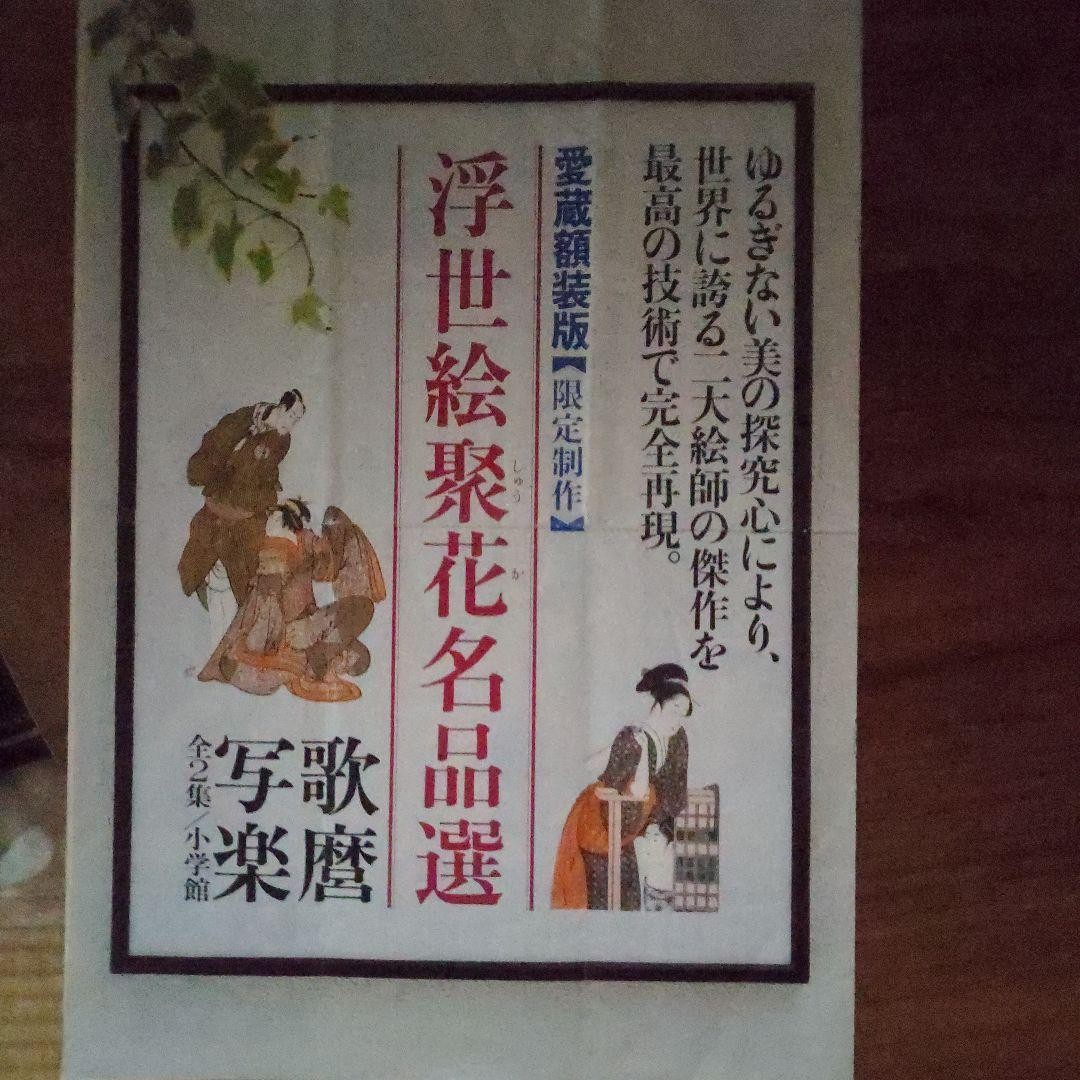 ゆるぎない美の探究心により、
世界に誇る二大絵師の傑作を
最高の技術で完全再現。
愛蔵額装版【限定制作】
浮世絵聚花名品選
しゅう か
歌麿
写楽
全2集/小学館